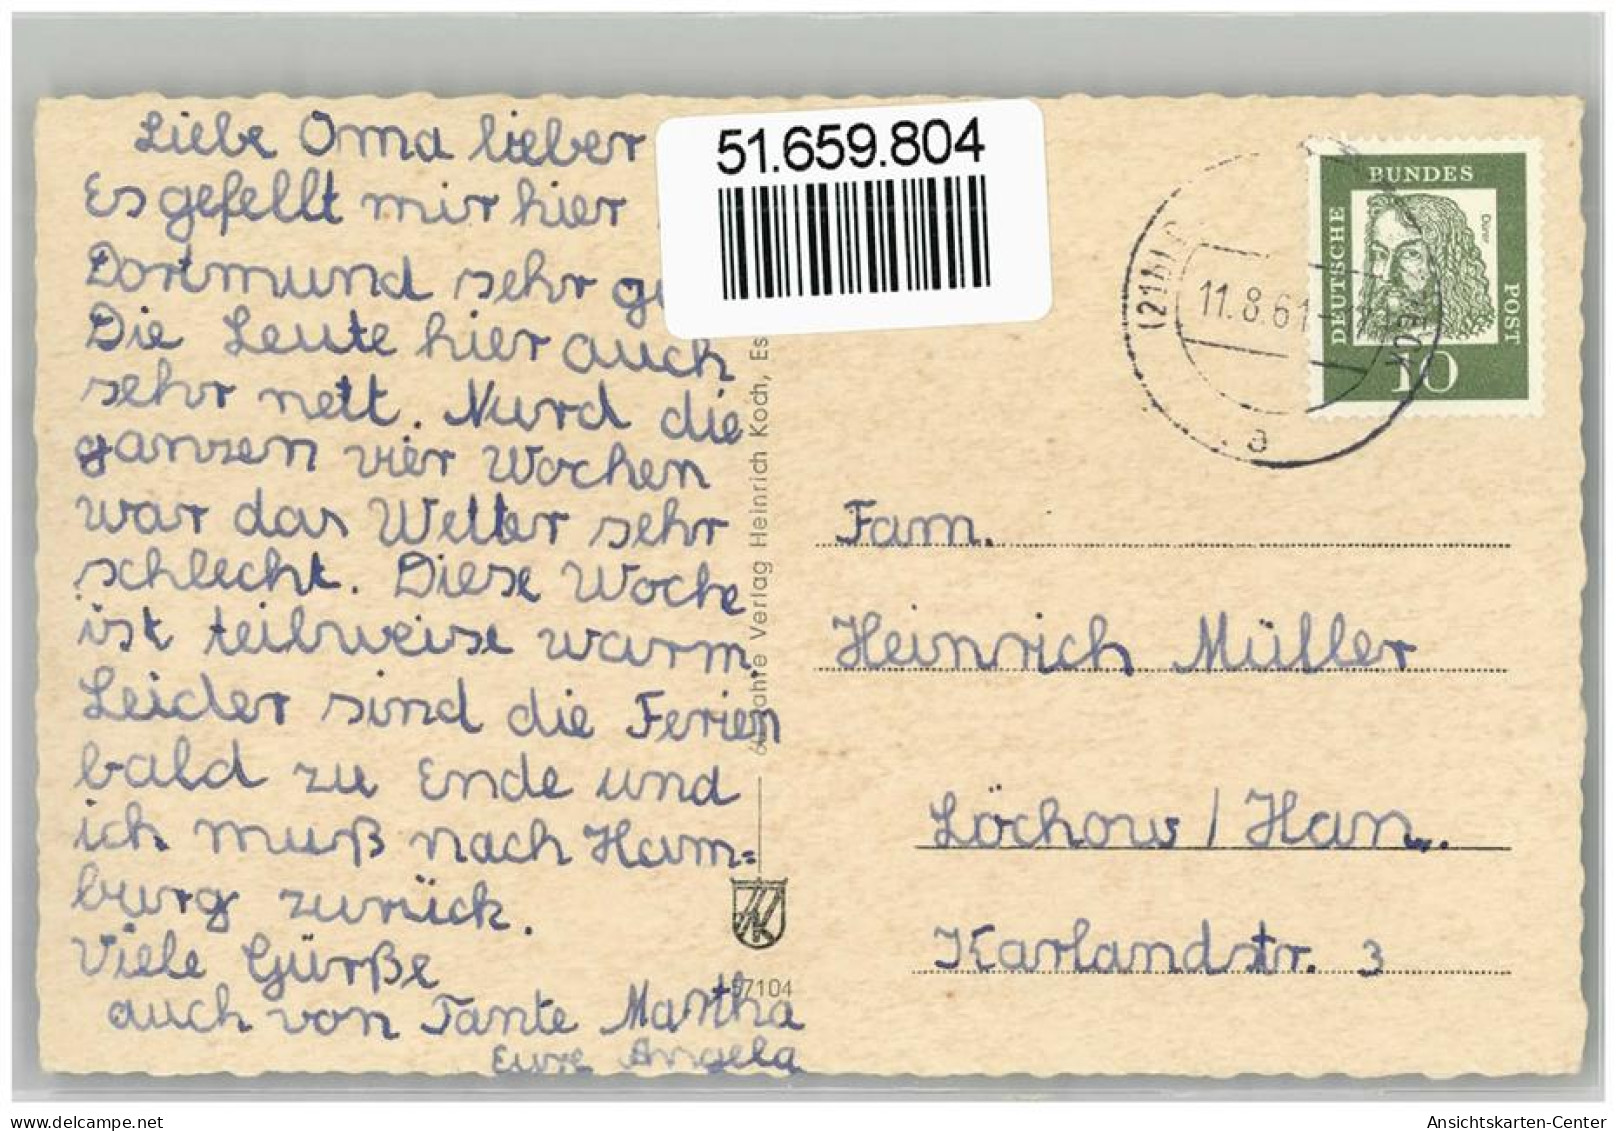 Liebe Oma lieber
Es gefellt mir hier
Dortmund sehr
Die Leute hier auch
sehr nett. Nurd die
ganzen vier Wochen
war das Wetter sehr
schlecht. Diese Woche
ist teilweise warm.
Leider sind die Ferien
bald zu Ende und
ich muß nach Ham=
burg zurück.
Viele Gürße
auch von Tante Martha
Eure Angela
51.659.804
Jahre Verlag Heinrich Koch, Es
57104
11.8.61
a
DEUTSCHE
BUNDES
POST
Dürer
10
Fam.
Heinrich Müller
Löchow / Han.
Karlandstr. 3
delcampe.net
Ansichtskarten-Center